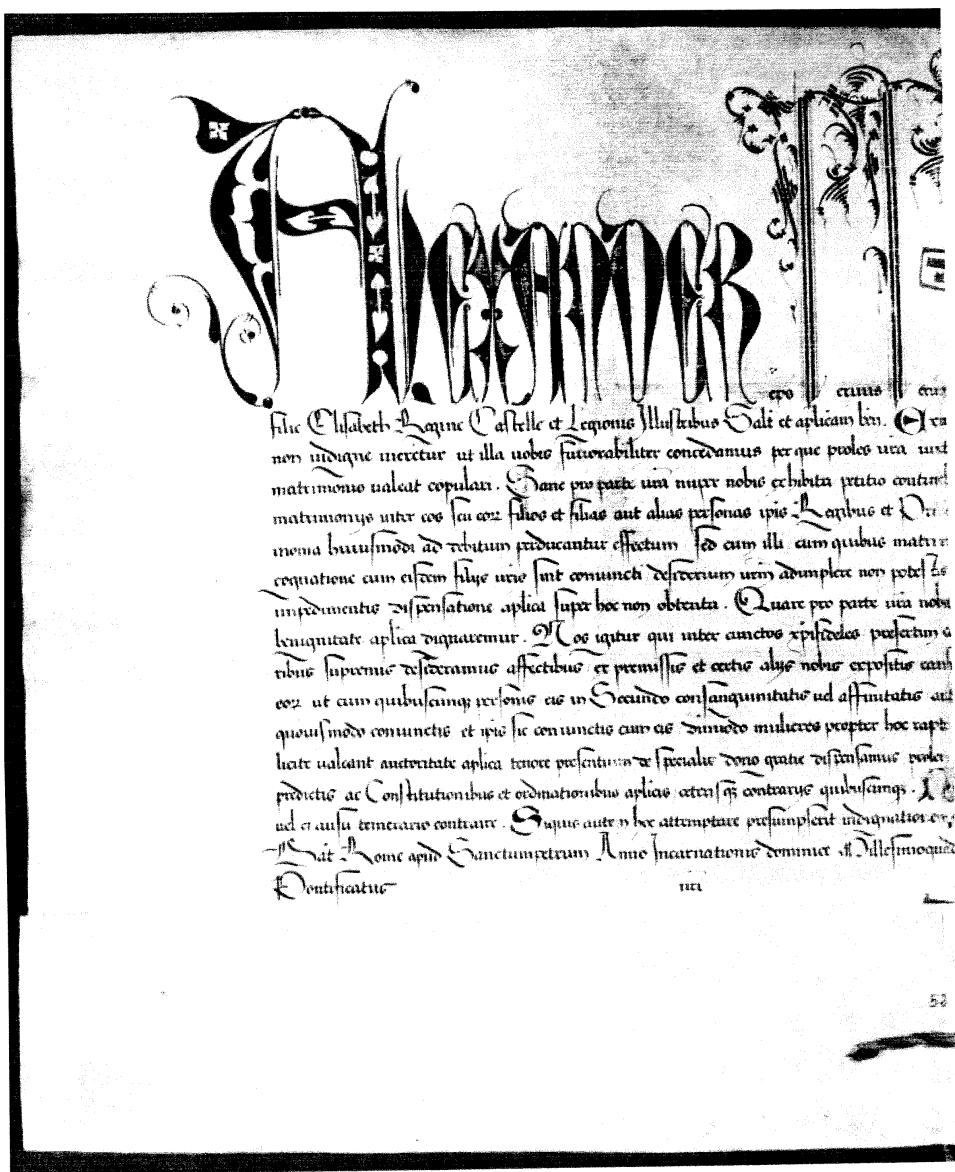 Alexander
epo eruus eruo
filie Elisabeth Regine Castelle et Legionis Illustribus Salt et aplicam ben.
non indigne meretur ut illa uobis fauorabiliter concedamus per que proles ura iuxt
matrimonio ualeat copulari. Sane pro parte ura nuper nobis exhibita petitio contineb
matrimonijs inter eos seu eorz filios et filias aut alias personas ipis Regibus et
monia huiusmodi ad debitum perducantur effectum Sed cum illi cum quibus matri
cognatione cum eisdem filijs uris sint coniuncti desiderium urm adimplere non potestis
impedimentis dispensatione aplica super hoc non obtenta. Quare pro parte ura nobis
benignitate aplica dignaremur. Nos igitur qui inter cunctos xpifideles presertim
ribus supremis desideramus affectibus ex premissis et certis alijs nobis expositis
eorz ut cum quibuscunqz personis eis in Secundo consanguinitatis uel affinitatis aut
quouismodo coniunctis et ipis sic coniunctis cum eis dumodo mulieres propter hoc rapte
licite ualeant auctoritate aplica tenore presentium de specialis dono gratie dispensamus
predictis ac Constitutionibus et ordinationibus aplicis ceterisqz contrarijs quibuscunqz.
uel ei ausu temerario contraire. Siquis autem hoc attemptare presumpserit indignationem
Dat Rome apud Sanctumpetrum Anno Incarnationis dominice Millesimoquad
Pontificatus nri
52